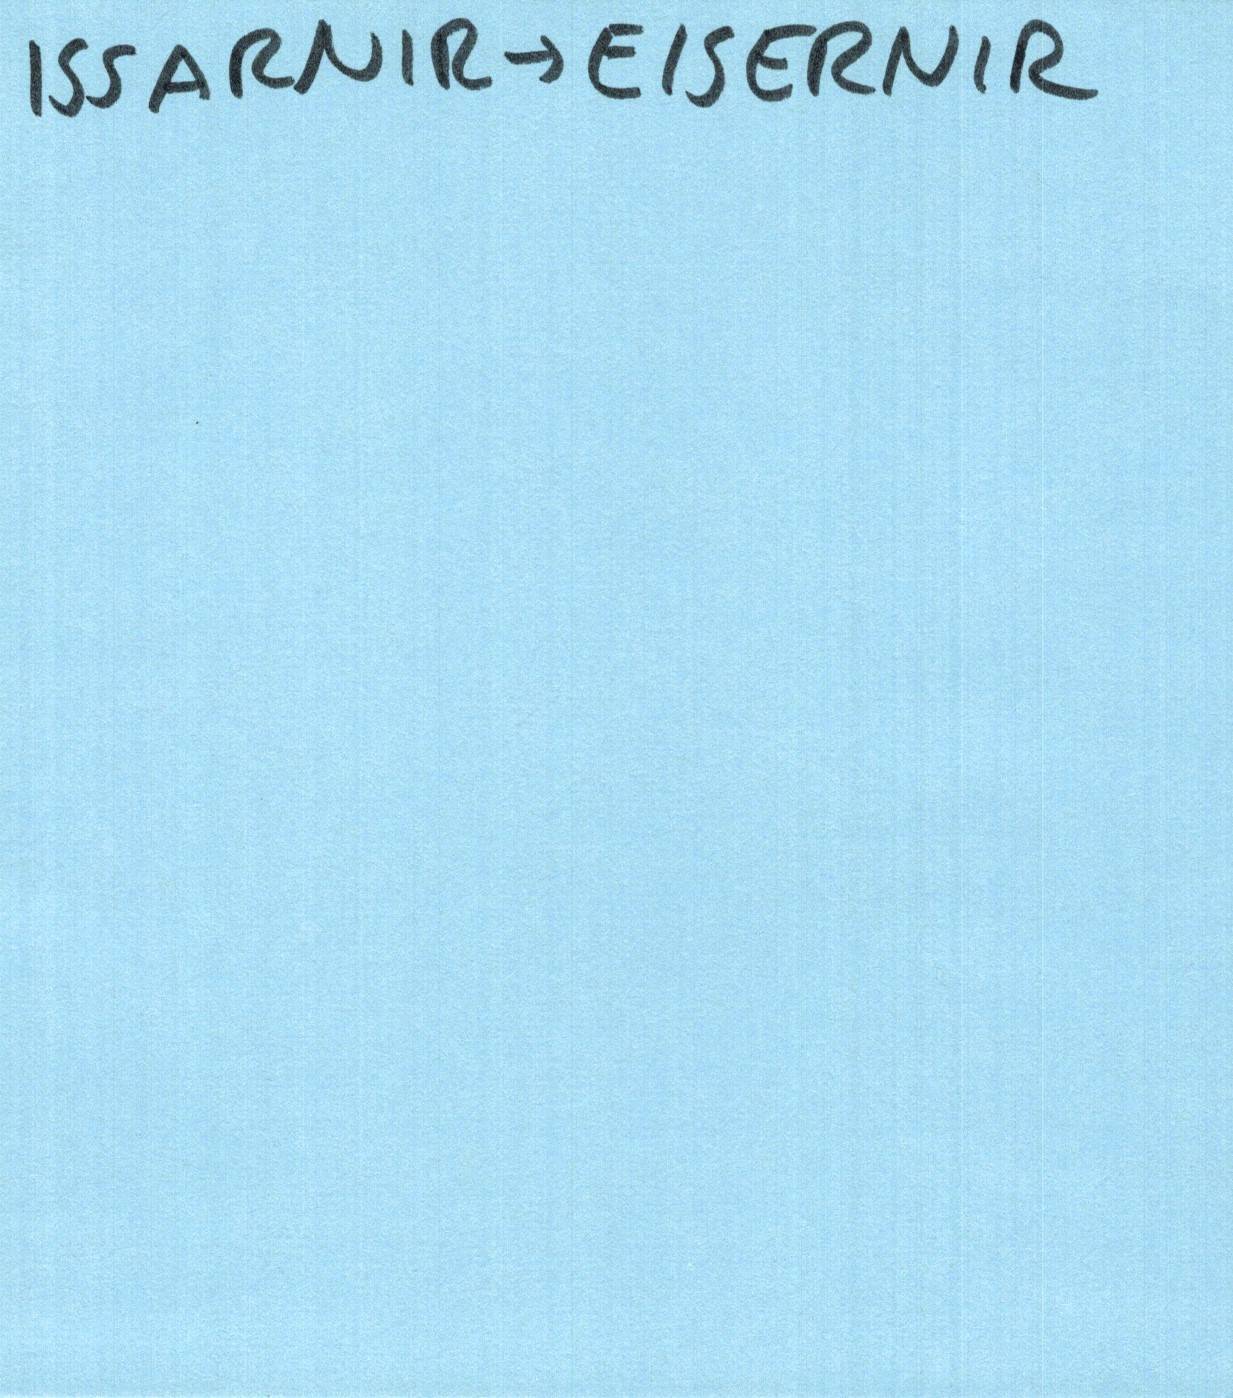 ISSARNIR→EISERNIR